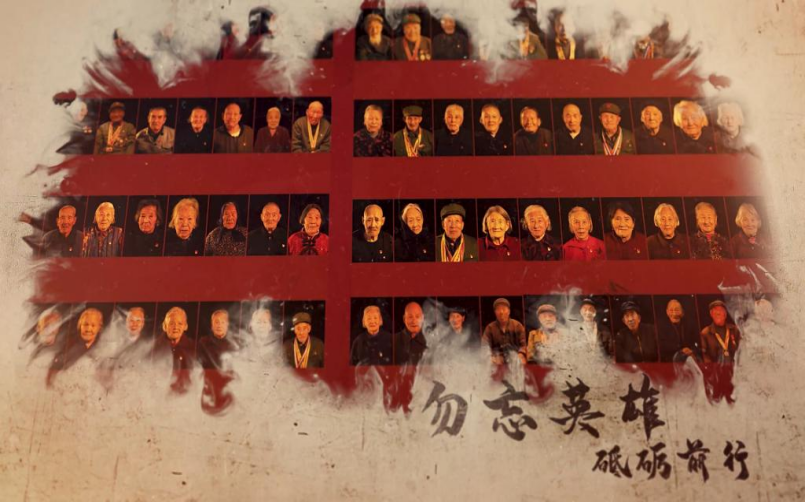 勿忘英雄
砥砺前行